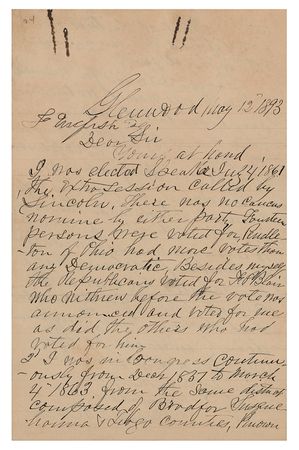 Glenwood May 12 1893
Dear Sir
Yours at hand
I was elected Speaker July 4, 1861
the Extra Session called by
Lincoln, there was no caucus
nominee by either party. Fourteen
persons were voted for, Pendle
ton of Ohio had more votes than
any Democratic, Besides myself
the republicans voted for Blair
who withdrew before the vote was
announced and voted for me
as did the others who had
voted for him
I was in Congress Continu
ously from Dec 1851 to March
4th 1863 from the same district
composed of Bradford Susque
hanna & Tioga Counties, Known